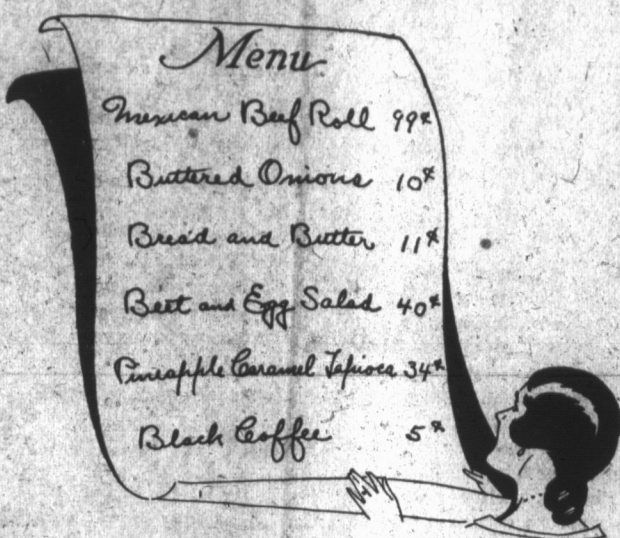 Menu
Mexican Beef Roll 99¢
Buttered Onions 10¢
Bread and Butter 11¢
Beet and Egg Salad 40¢
Pineapple Caramel Tapioca 34¢
Black Coffee 5¢